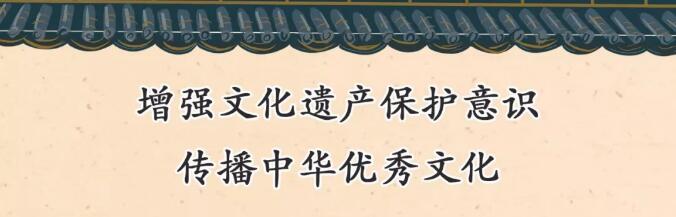 增强文化遗产保护意识
传播中华优秀文化